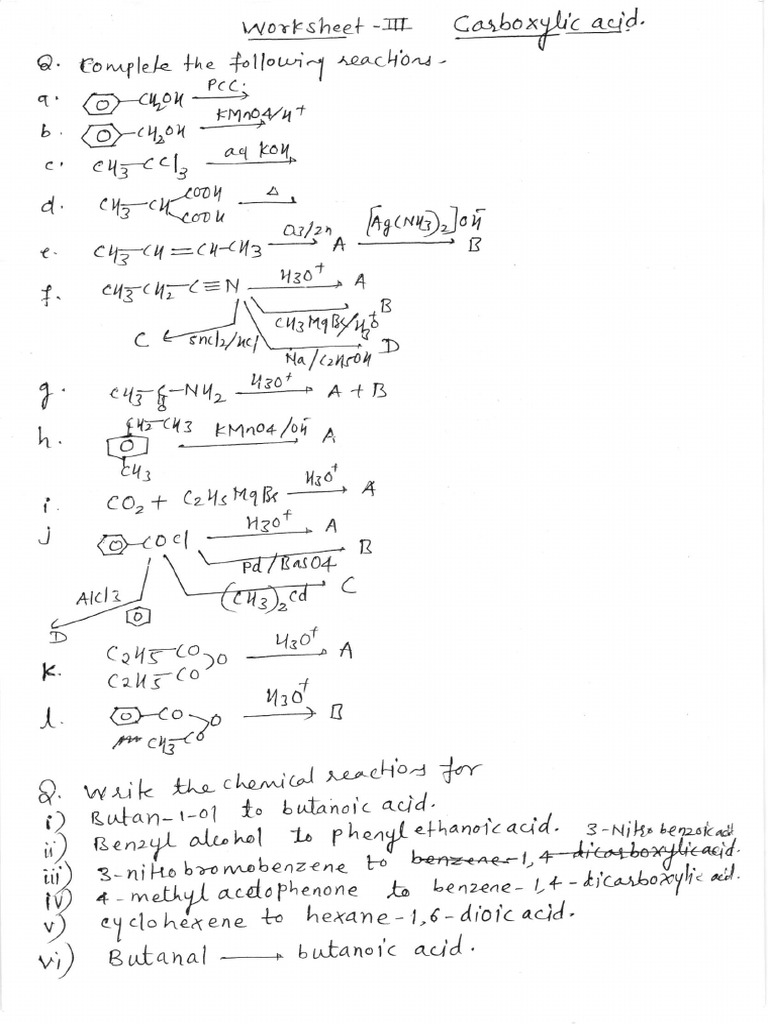 Worksheet-III Carboxylic acid.
Q. Complete the following reactions.
a. CH2OH PCC.
b. CH2OH KMnO4/H+
c. CH3-CCl3 aq KOH
d. CH3-CH COOH COOH Δ
e. CH3-CH=CH-CH3 O3/Zn A [Ag(NH3)2]OH- B
f. CH3-CH2-C≡N H3O+ A
CH3MgBr/H3O+ B
C SnCl2/HCl
Na/C2H5OH D
g. CH3-C-NH2 H3O+ A + B
O
h. CH2-CH3 KMnO4/OH- A
CH3
i. CO2 + C2H5MgBr H3O+ A
j COCl H3O+ A
Pd/BaSO4 B
(CH3)2Cd C
AlCl3 D
k. C2H5-CO O H3O+ A
C2H5-CO
l. CO O H3O+ B
CH3-CO
Q. Write the chemical reactions for
i) Butan-1-ol to butanoic acid.
ii) Benzyl alcohol to phenylethanoic acid.
iii) 3-nitrobromobenzene to benzene-1,4-dicarboxylic acid. 3-Nitrobenzoic acid
iv) 4-methyl acetophenone to benzene-1,4-dicarboxylic acid.
v) cyclohexene to hexane-1,6-dioic acid.
vi) Butanal → butanoic acid.